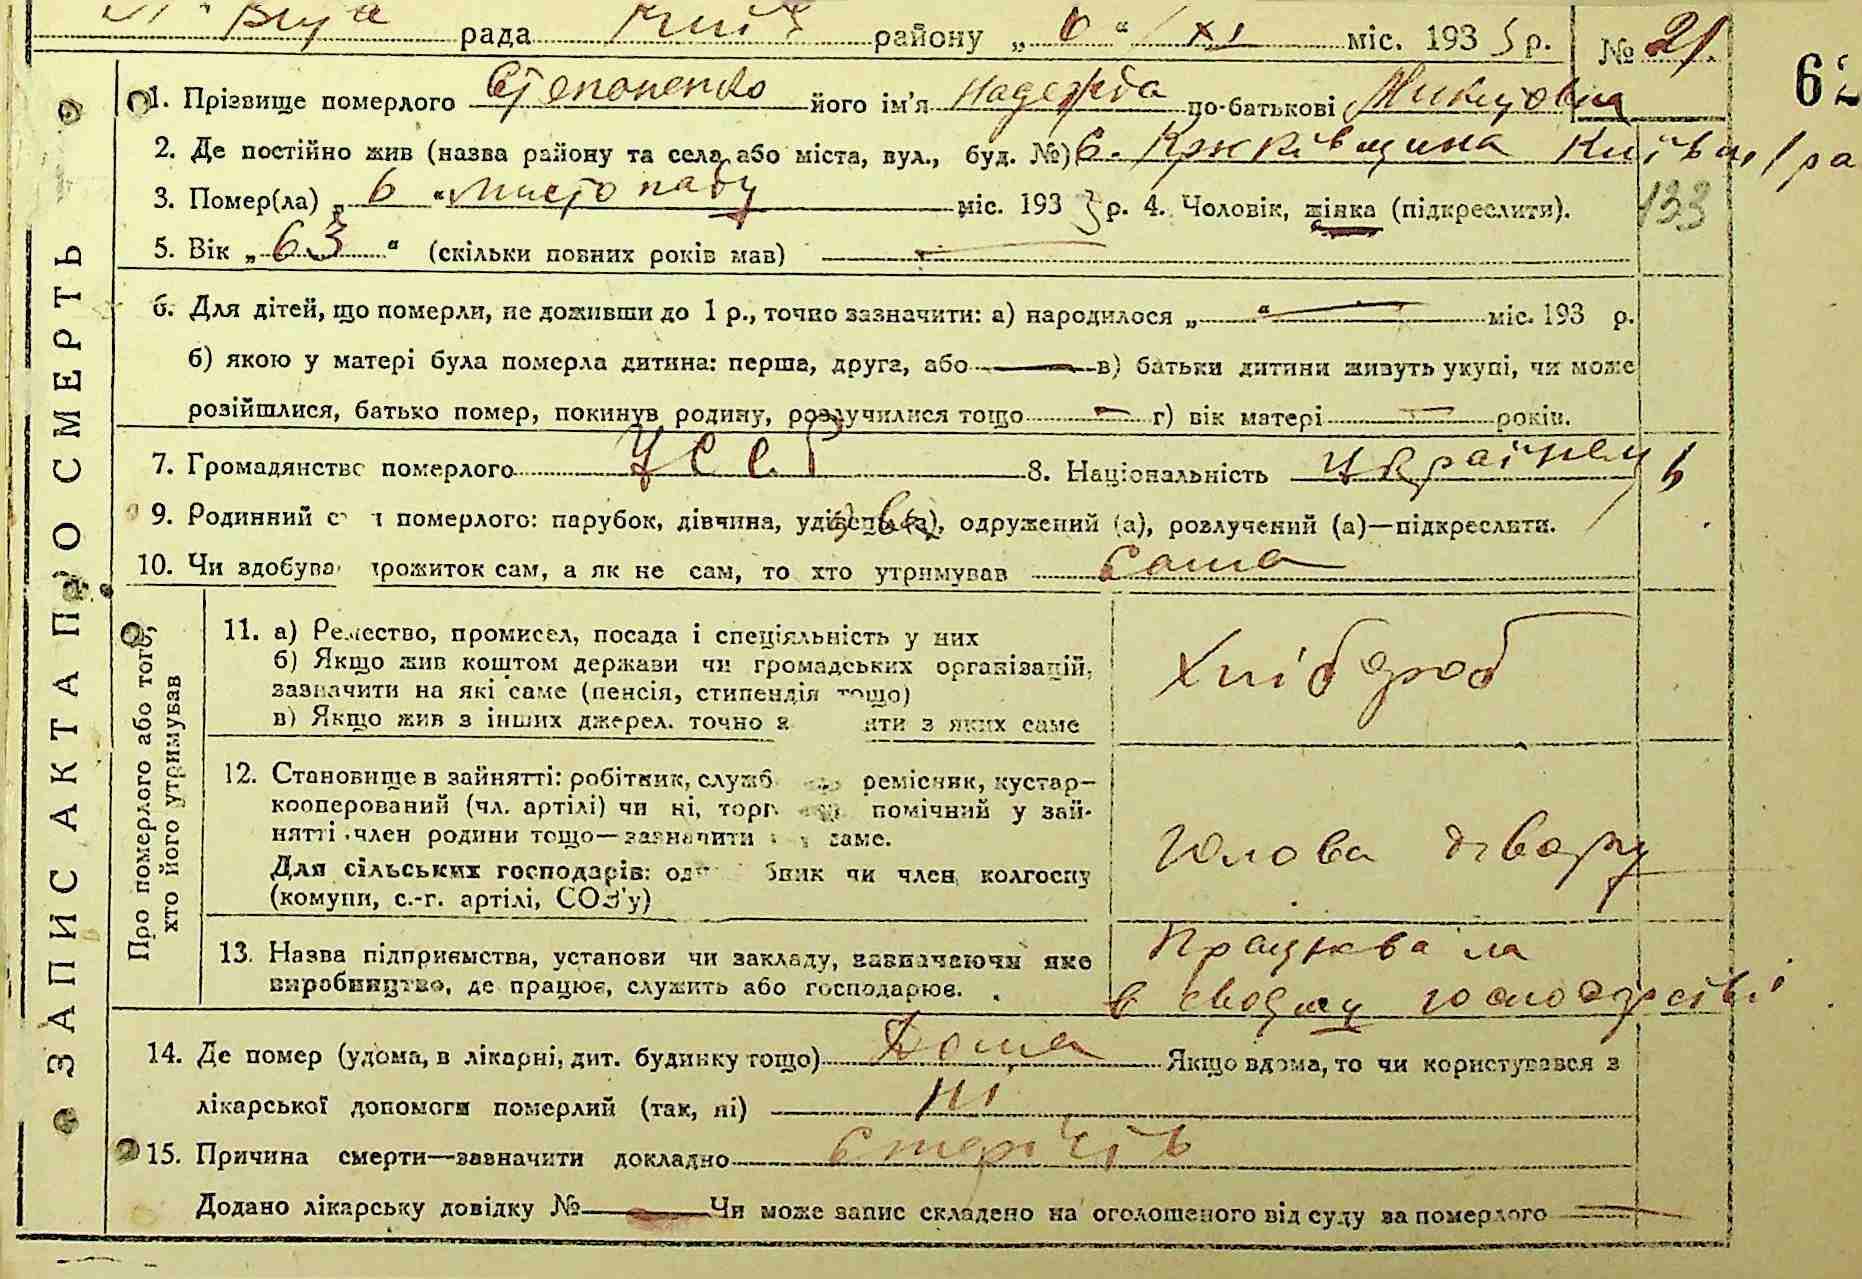 рада района „ 6 “ XI міс. 1933 р. № 21.
62
1. Прізвище померлого Степаненко його ім'я Надежда по-батькові Микитовна
2. Де постійно жив (назва району та села або міста, вул., буд. №) С. Крюківщина
133
3. Помер(ла) „ 6 “ листопаду міс. 1933 р. 4. Чоловік, жінка (підкреслити).
5. Вік „ 63 “ (скільки повних років мав)
6. Для дітей, що померли, не доживши до 1 р., точно зазначити: а) народилося „ “ міс. 193 р.
б) якою у матері була померла дитина: перша, друга, або в) батьки дитини живуть укупі, чи може
розійшлися, батько помер, покинув родину, розлучилися тощо г) вік матері років.
7. Громадянство померлого УССР 8. Національність Українець
9. Родинний померлого: парубок, дівчина, одружений (а), розлучений (а)—підкреслити.
10. Чи здобував прожиток сам, а як не сам, то хто утримував Сама
ЗАПИС АКТА ПРО СМЕРТЬ
Про померлого або того,
хто його утримував
11. а) Ремество, промисел, посада і спеціяльність у них
б) Якщо жив коштом держави чи громадських організацій,
зазначити на які саме (пенсія, стипендія тощо)
в) Якщо жив з інших джерел. точно з яких саме
Хлібороб
12. Становище в зайнятті: робітник, служб ремісник, кустар-
кооперований (чл. артілі) чи ні, торг помічний у зай-
нятті член родини тощо—зазначити саме.
Для сільських господарів: одноосібник чи член колгоспу
(комуни, с.-г. артілі, СОЗ'у)
Голова двору
13. Назва підприємства, установи чи закладу, зазначаючи яке
виробництво, де працює, служить або господарює.
Працювала
в своєму господарстві
14. Де помер (удома, в лікарні, дит. будинку тощо) Дома Якщо вдома, то чи користувався з
лікарської допомоги померлий (так, ні) Ні
15. Причина смерти—зазначити докладно Старість
Додано лікарську довідку № Чи може запис складено на оголошеного від суду за померлого